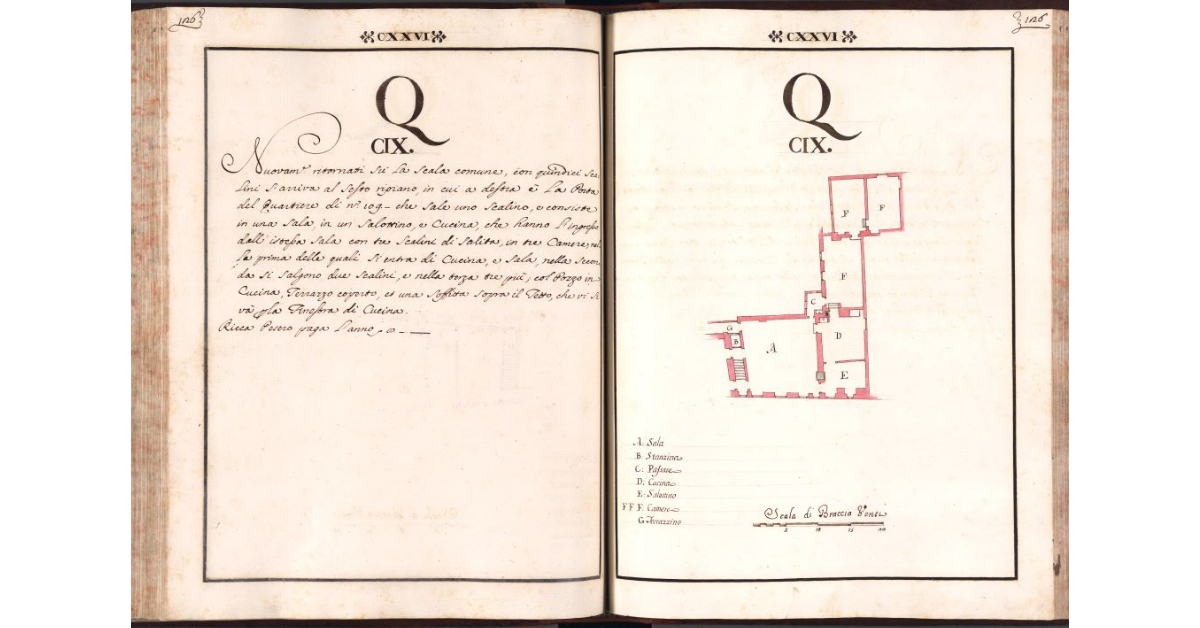 126
CXXVI
Q
CIX.
Nuovam.e ritornati su la scala comune, con quindici sca
lini s'arriva al sesto ripiano, in cui a destra è la Porta
del Quartiere di n.o 109 - che sale uno scalino, e consiste
in una sala, in un salottino, e Cucina, che hanno l'ingresso
dall'istessa sala con tre scalini di salita, in tre Camere, nel
la prima delle quali si entra di Cucina, e sala, nella secon
da si salgono due scalini, e nella terza tre più; col Pozzo in
Cucina, Terrazzo coperto, et una soffitta sopra il Tetto, che vi si
và p la Finestra di Cucina.
Ricca Pesero paga l'anno
126
CXXVI
Q
CIX.
F F
F
C
G
B
A
D
E
A: Sala
B: Stanzino
C: Passare
D: Cucina
E: Salottino
F F F: Camere
G: Terrazzino
Scala di Braccia Venti
5 10 15 20